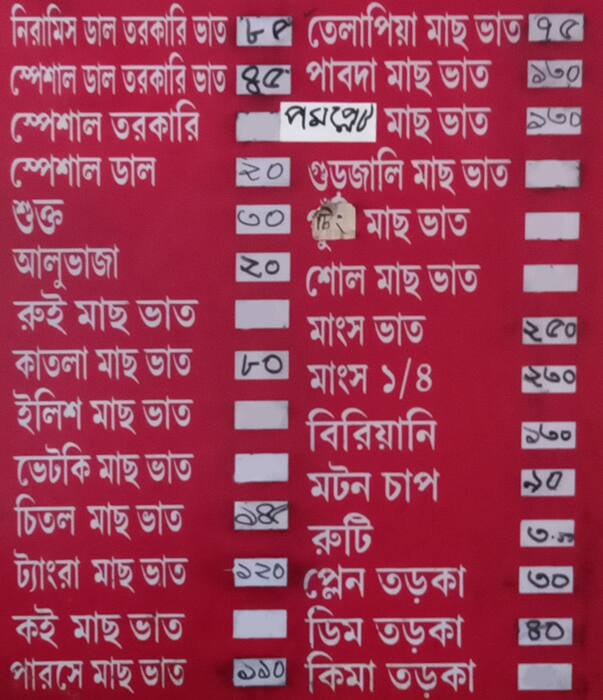 নিরামিস ডাল তরকারি ভাত ৮৫
স্পেশাল ডাল তরকারি ভাত ৪৫
স্পেশাল তরকারি
স্পেশাল ডাল ২০
শুক্ত ৩০
আলুভাজা ২০
রুই মাছ ভাত
কাতলা মাছ ভাত ৮০
ইলিশ মাছ ভাত
ভেটকি মাছ ভাত
চিতল মাছ ভাত ১৪৫
ট্যাংরা মাছ ভাত ১২০
কই মাছ ভাত
পারসে মাছ ভাত ১১০
তেলাপিয়া মাছ ভাত ৭৫
পাবদা মাছ ভাত ১৩০
পমপ্লেট মাছ ভাত ১৩০
গুড়জালি মাছ ভাত
মাছ ভাত
শোল মাছ ভাত
মাংস ভাত ২৫০
মাংস ১/৪ ২৩০
বিরিয়ানি ১৬০
মটন চাপ ৯০
রুটি
প্লেন তড়কা ৩০
ডিম তড়কা ৪০
কিমা তড়কা